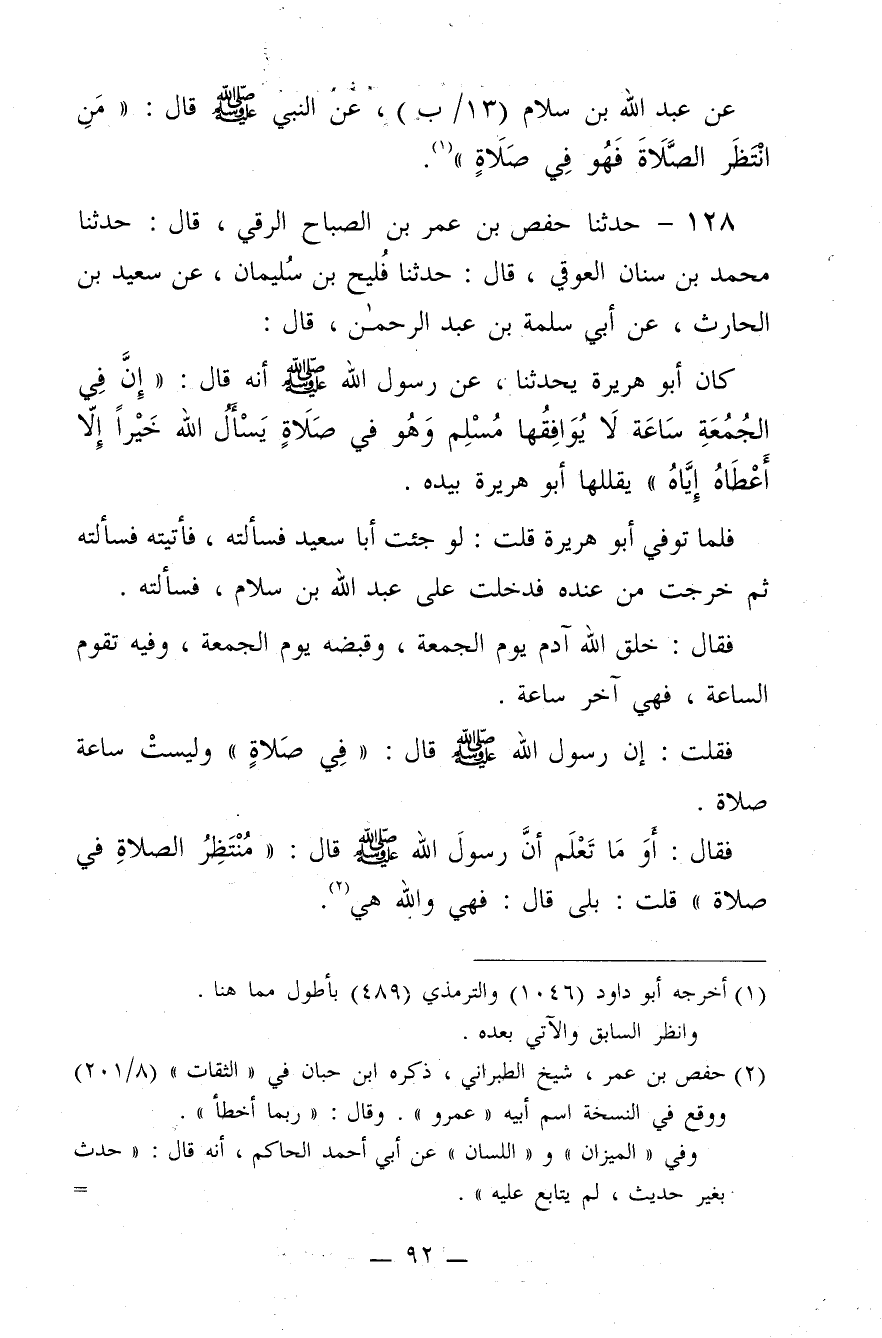 عن عبد الله بن سلام (١٣/ ب) ، عَنْ النبي ﷺ قال : « مَنِ
انْتَظَر الصَّلَاةَ فَهُو فِي صَلَاةٍ »(١).
١٢٨ – حدثنا حفص بن عمر بن الصباح الرقي ، قال : حدثنا
محمد بن سنان العوقي ، قال : حدثنا فُليح بن سُليمان ، عن سعيد بن
الحارث ، عن أبي سلمة بن عبد الرحمـٰن ، قال :
كان أبو هريرة يحدثنا ، عن رسول الله ﷺ أنه قال : « إِنَّ فِي
الجُمُعَةِ سَاعَة لَا يُوَافِقُها مُسْلِم وَهُو في صَلَاةٍ يَسْأَلُ الله خَيْراً إلَّا
أَعْطَاهُ إِيَّاهُ » يقللها أبو هريرة بيده .
فلما توفي أبو هريرة قلت : لو جئت أبا سعيد فسألته ، فأتيته فسألته
ثم خرجت من عنده فدخلت على عبد الله بن سلام ، فسألته .
فقال : خلق الله آدم يوم الجمعة ، وقبضه يوم الجمعة ، وفيه تقوم
الساعة ، فهي آخر ساعة .
فقلت : إن رسول الله ﷺ قال : « فِي صَلاةٍ » وليستْ ساعة
صلاة .
فقال : أَوَ مَا تَعْلَم أنَّ رسولَ الله ﷺ قال : « مُنْتَظِرُ الصلاةِ في
صلاة » قلت : بلى قال : فهي والله هي(٢).
(١) أخرجه أبو داود (١٠٤٦) والترمذي (٤٨٩) بأطول مما هنا .
وانظر السابق والآتي بعده .
(٢) حفص بن عمر ، شيخ الطبراني ، ذكره ابن حبان في « الثقات » (٢٠١/٨)
ووقع في النسخة اسم أبيه « عمرو » . وقال : « ربما أخطأ » .
وفي « الميزان » و « اللسان » عن أبي أحمد الحاكم ، أنه قال : « حدث
بغير حديث ، لم يتابع عليه » . =
— ٩٢ —